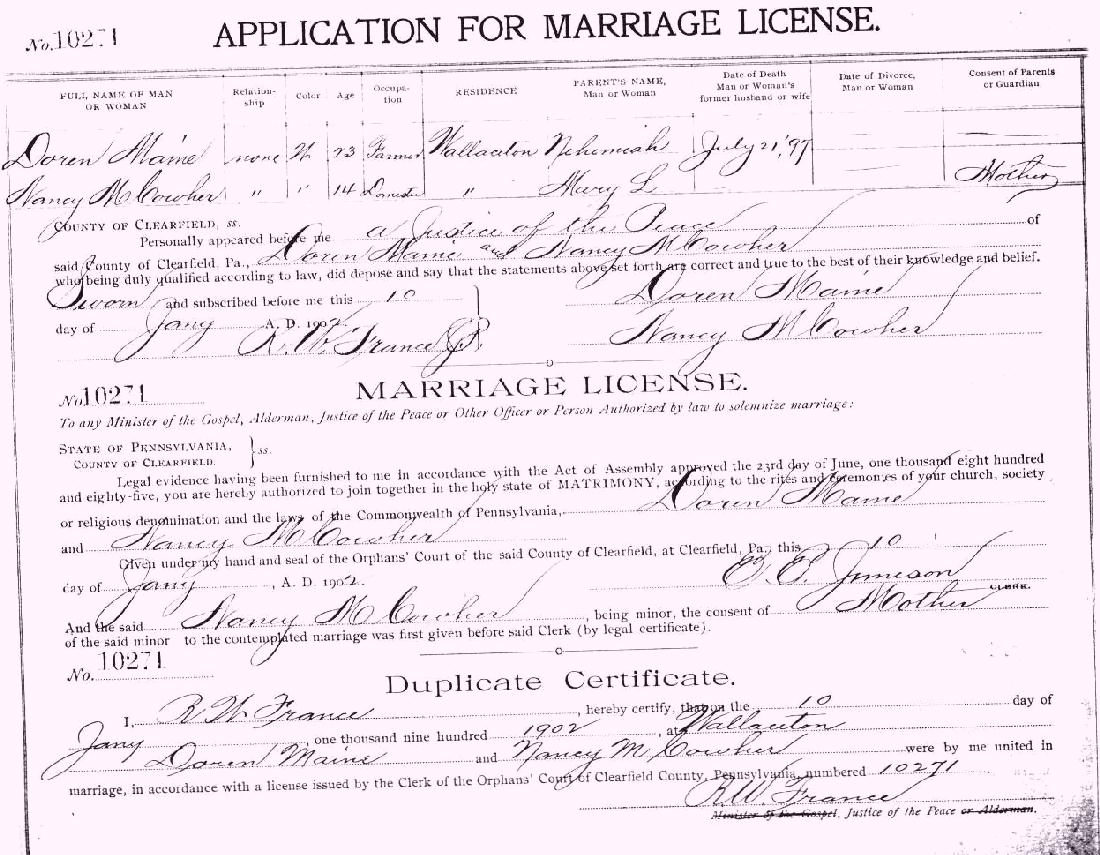 No. 10271 APPLICATION FOR MARRIAGE LICENSE.
FULL NAME OF MAN OR WOMAN Relationship Color Age Occupation RESIDENCE PARENT'S NAME, Man or Woman Date of Death Man or Woman's former husband or wife Date of Divorce, Man or Woman Consent of Parents or Guardian
Doren Maine none W 23 Farmer Wallaceton Nehemiah July 21, '97
Nancy M Cowher " " 14 " Mary L Mother
COUNTY OF CLEARFIELD, ss.
Personally appeared before me a Justice of the Peace of
said County of Clearfield, Pa., Doren Maine and Nancy M Cowher
who being duly qualified according to law, did depose and say that the statements above set forth are correct and true to the best of their knowledge and belief.
Sworn and subscribed before me this 10 Doren Maine
day of Jany A. D. 1902 Nancy M Cowher
R. W. France J.P.
No. 10271 MARRIAGE LICENSE.
To any Minister of the Gospel, Alderman, Justice of the Peace or Other Officer or Person Authorized by law to solemnize marriage:
STATE OF PENNSYLVANIA, ss.
COUNTY OF CLEARFIELD.
Legal evidence having been furnished to me in accordance with the Act of Assembly approved the 23rd day of June, one thousand eight hundred
and eighty-five, you are hereby authorized to join together in the holy state of MATRIMONY, according to the rites and ceremonies of your church, society
or religious denomination and the laws of the Commonwealth of Pennsylvania, Doren Maine
and Nancy M Cowher
Given under my hand and seal of the Orphans' Court of the said County of Clearfield, at Clearfield, Pa., this 10
day of Jany, A. D. 1902. Jimeson
CLERK.
And the said Nancy M Cowher, being minor, the consent of Mother
of the said minor to the contemplated marriage was first given before said Clerk (by legal certificate).
No. 10271
Duplicate Certificate.
I, R W France, hereby certify, that on the 10 day of
Jany, one thousand nine hundred 1902, at Wallaceton
Doren Maine and Nancy M Cowher were by me united in
marriage, in accordance with a license issued by the Clerk of the Orphans' Court of Clearfield County, Pennsylvania, numbered 10271
R.W. France
Minister of the Gospel, Justice of the Peace or Alderman.